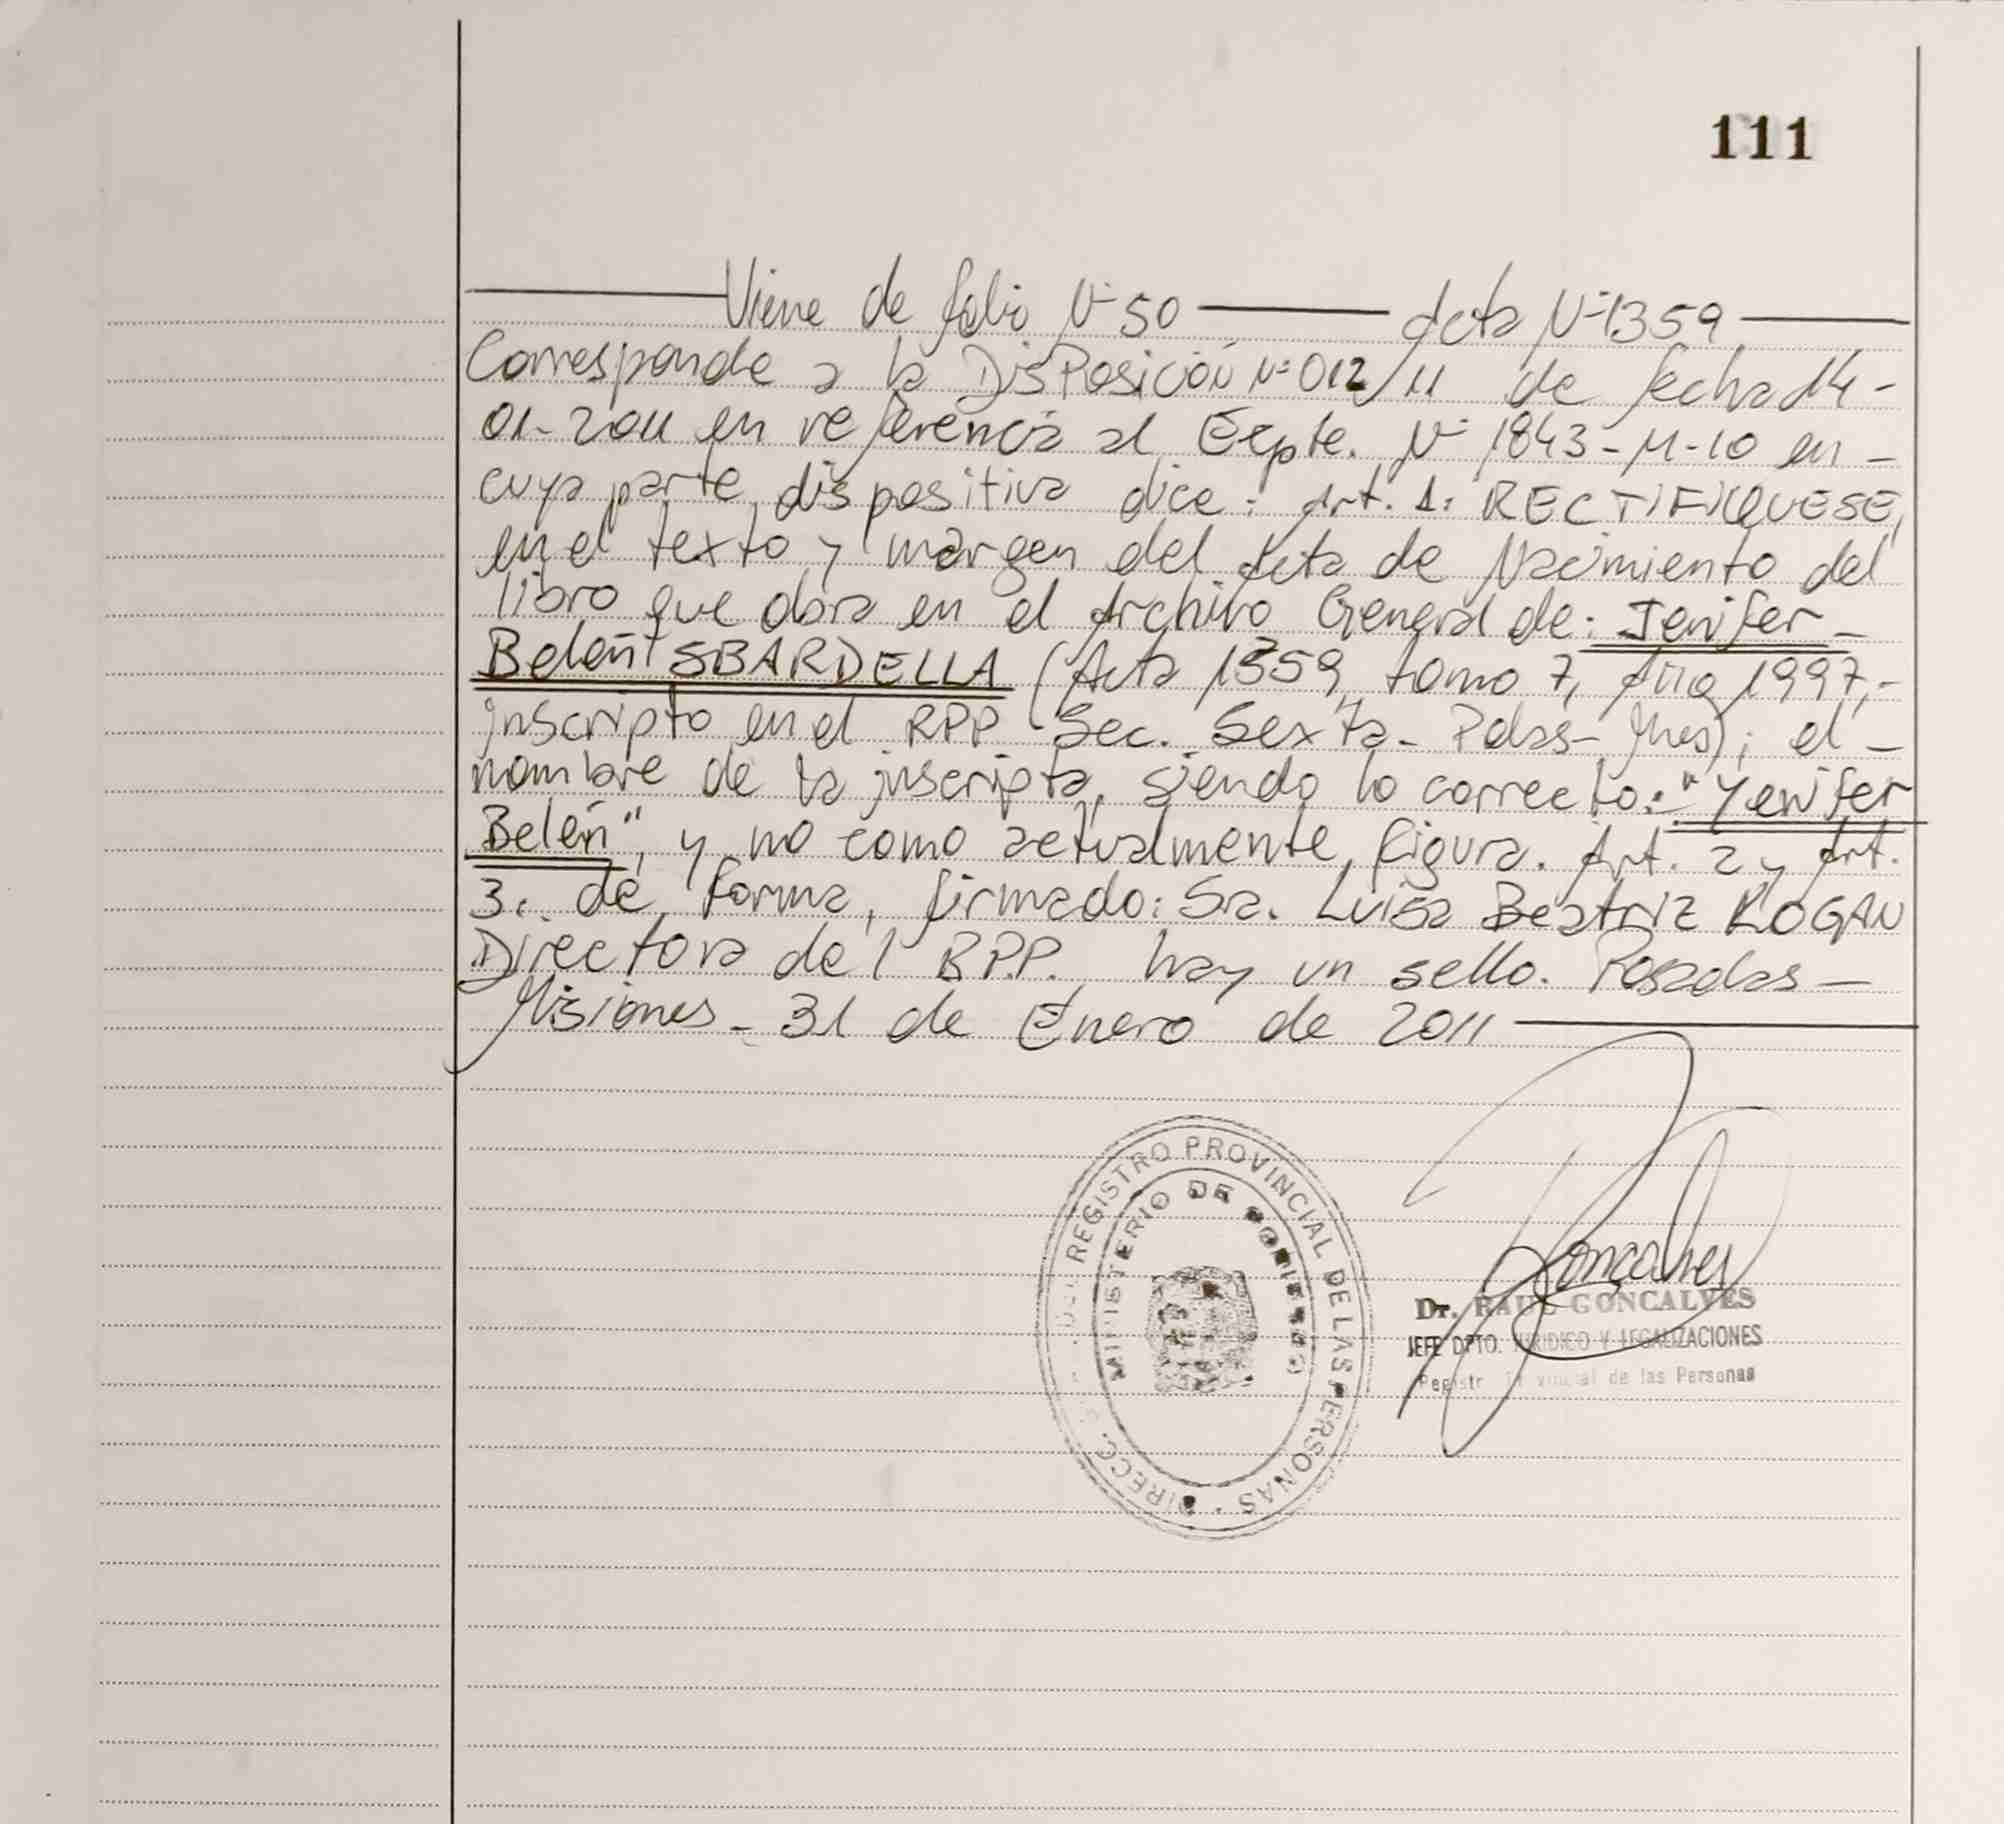 111
Viene de folio Nº 50 Acta Nº 1359
Corresponde a la Disposición Nº 012/11 de fecha 14-
01-2011 en referencia al Expte. Nº 1843-M-10 en-
cuya parte dispositiva dice: Art. 1: RECTIFIQUESE,
en el texto y margen del Acta de Nacimiento del
libro que obra en el Archivo General de: Jenifer-
Belén SBARDELLA (Acta 1359, tomo 7, Año 1997,-
inscripto en el RPP Sec. Sexta- Pdas- Mnes); el-
nombre de la inscripta, siendo lo correcto: "Yenifer
Belén", y no como actualmente figura. Art. 2 y Art.
3: de forma, firmado: Sra. Luisa Beatriz ROGAN
Directora del RPP. hay un sello. Posadas-
Misiones- 31 de Enero de 2011
DIRECC. DEL REGISTRO PROVINCIAL DE LAS PERSONAS
MINISTERIO DE GOBIERNO
Goncalves
Dr. RAUL GONCALVES
JEFE DPTO. JURIDICO Y LEGALIZACIONES
Registro Provincial de las Personas